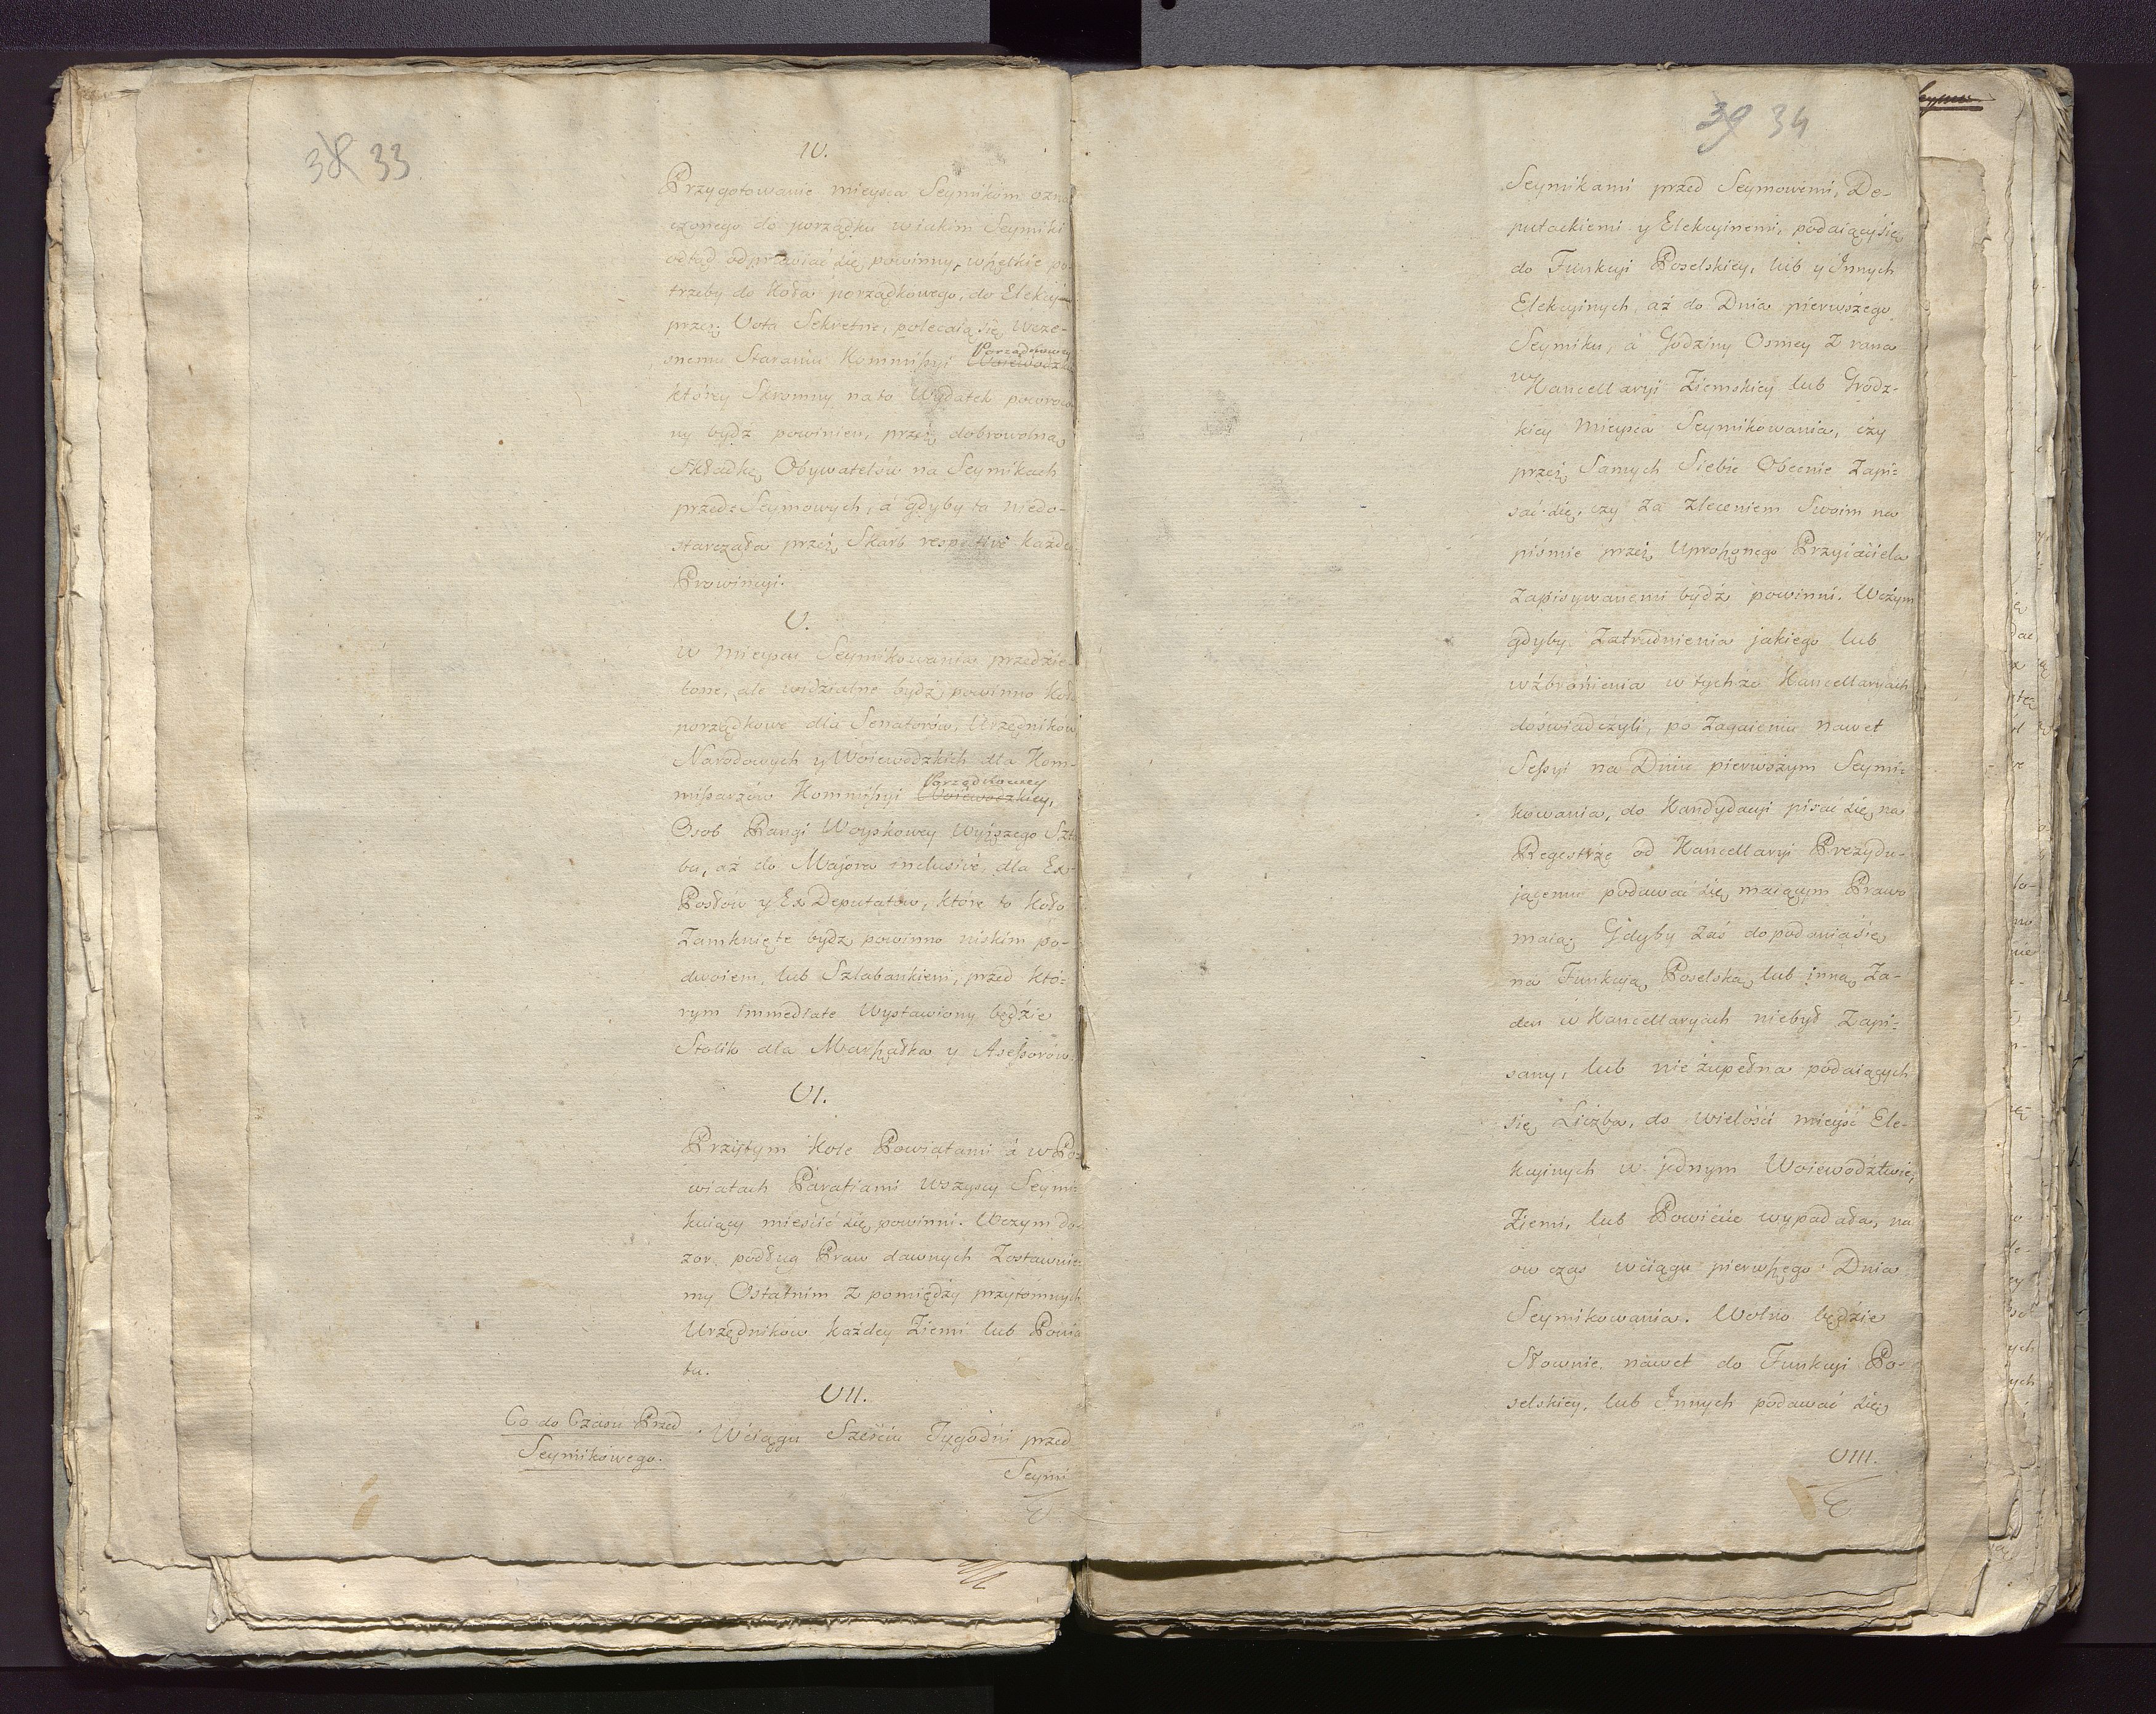 38 33
IV.
Przygotowanie mieysca Seymikom ozna
czonego do porządku wiakim Seymiki
odtąd odprawiać się powinny, wszelkie po
trzeby do Koła porządkowego, do Elekcyi
przez Vota Sekretne, polecaią się wcze-
snemu Staraniu Kommissyi Porządkowey Woiewodzkiey
którey Skromny nato Wydatek powroco
ny bydź powinien, przez dobrowolną
Składkę Obywatelów na Seymikach
przed=Seymowych, á gdyby ta niedo-
starczała przez Skarb respective każdey
Prowincyi.
V.
W Mieyscu Seymikowania przedzie
lone, ale widzialne bydź powinno Koło
porządkowe dla Senatorów, Urzędników
Narodowych y Woiewodzkich dla Kom-
missarzów Kommissyi Porządkowey Woiewodzkiey,
Osob Rangi Woyskowey Wyższego Szta
bu, aż do Majora inclusivè, dla Ex
Posłów y Ex Deputatów, które to Koło
Zamknięte bydź powinno niskim po-
dwoiem, lub Szlabankiem, przed któ-
rym immediate Wystawiony będzie
Stolik dla Marszałka y Assessorów.
VI.
Przytym Kole Powiatami á w Po
wiatach Parafiami wszyscy Seymi
kuiący mieścić się powinni. Wczym do
zor podług Praw dawnych Zostawuie
my Ostatnim z pomiędzy przytomnych
Urzędników każdey Ziemi lub Powia
tu.
VII.
Co do Czasu Przed
Seymikowego.
Wciągu Sześciu Tygodni przed
Seymi
39 34
Seymikami przed Seymowemi, De-
putackiemi y Elekcyinemi, podaiący się
do Funkcyi Poselskiey, lub y Innych
Elekcyinych aż do Dnia pierwszego
Seymiku, á Godziny Osmey z rana
w Kancellaryi Ziemskiey lub Grodz-
kiey Mieysca Seymikowania, czy
przez Samych Siebie Obecnie Zapi-
sać się, czy za Zleceniem Swoim na
piśmie przez Uproszonego Przyiaciela
Zapisywanemi bydź powinni. Wczym
gdyby Zatrudnienia jakiego lub
wzbronienia w tychże Kancellaryach
doświadczyli, po Zagaieniu nawet
Sessyi na Dniu pierwszym Seymi-
kowania, do Kandydacyi pisać się na
Regestrze od Kancellaryi Prezydu-
jącemu podawać się maiącym Prawo
maią. Gdyby zaś do podania się
na Funkcyą Poselską lub inną Ża-
den w Kancellaryach niebył Zapi-
sany, lub niezupełna podaiących
się Liczba, do wielości mieysc Ele-
kcyinych w jednym Woiewodztwie,
Ziemi, lub Powiecie wypadała, na
ow czas wciągu pierwszego Dnia
Seymikowania. Wolno będzie
Słownie nawet do Funkcyi Po-
selskiey, lub Innych podawać się
VIII.